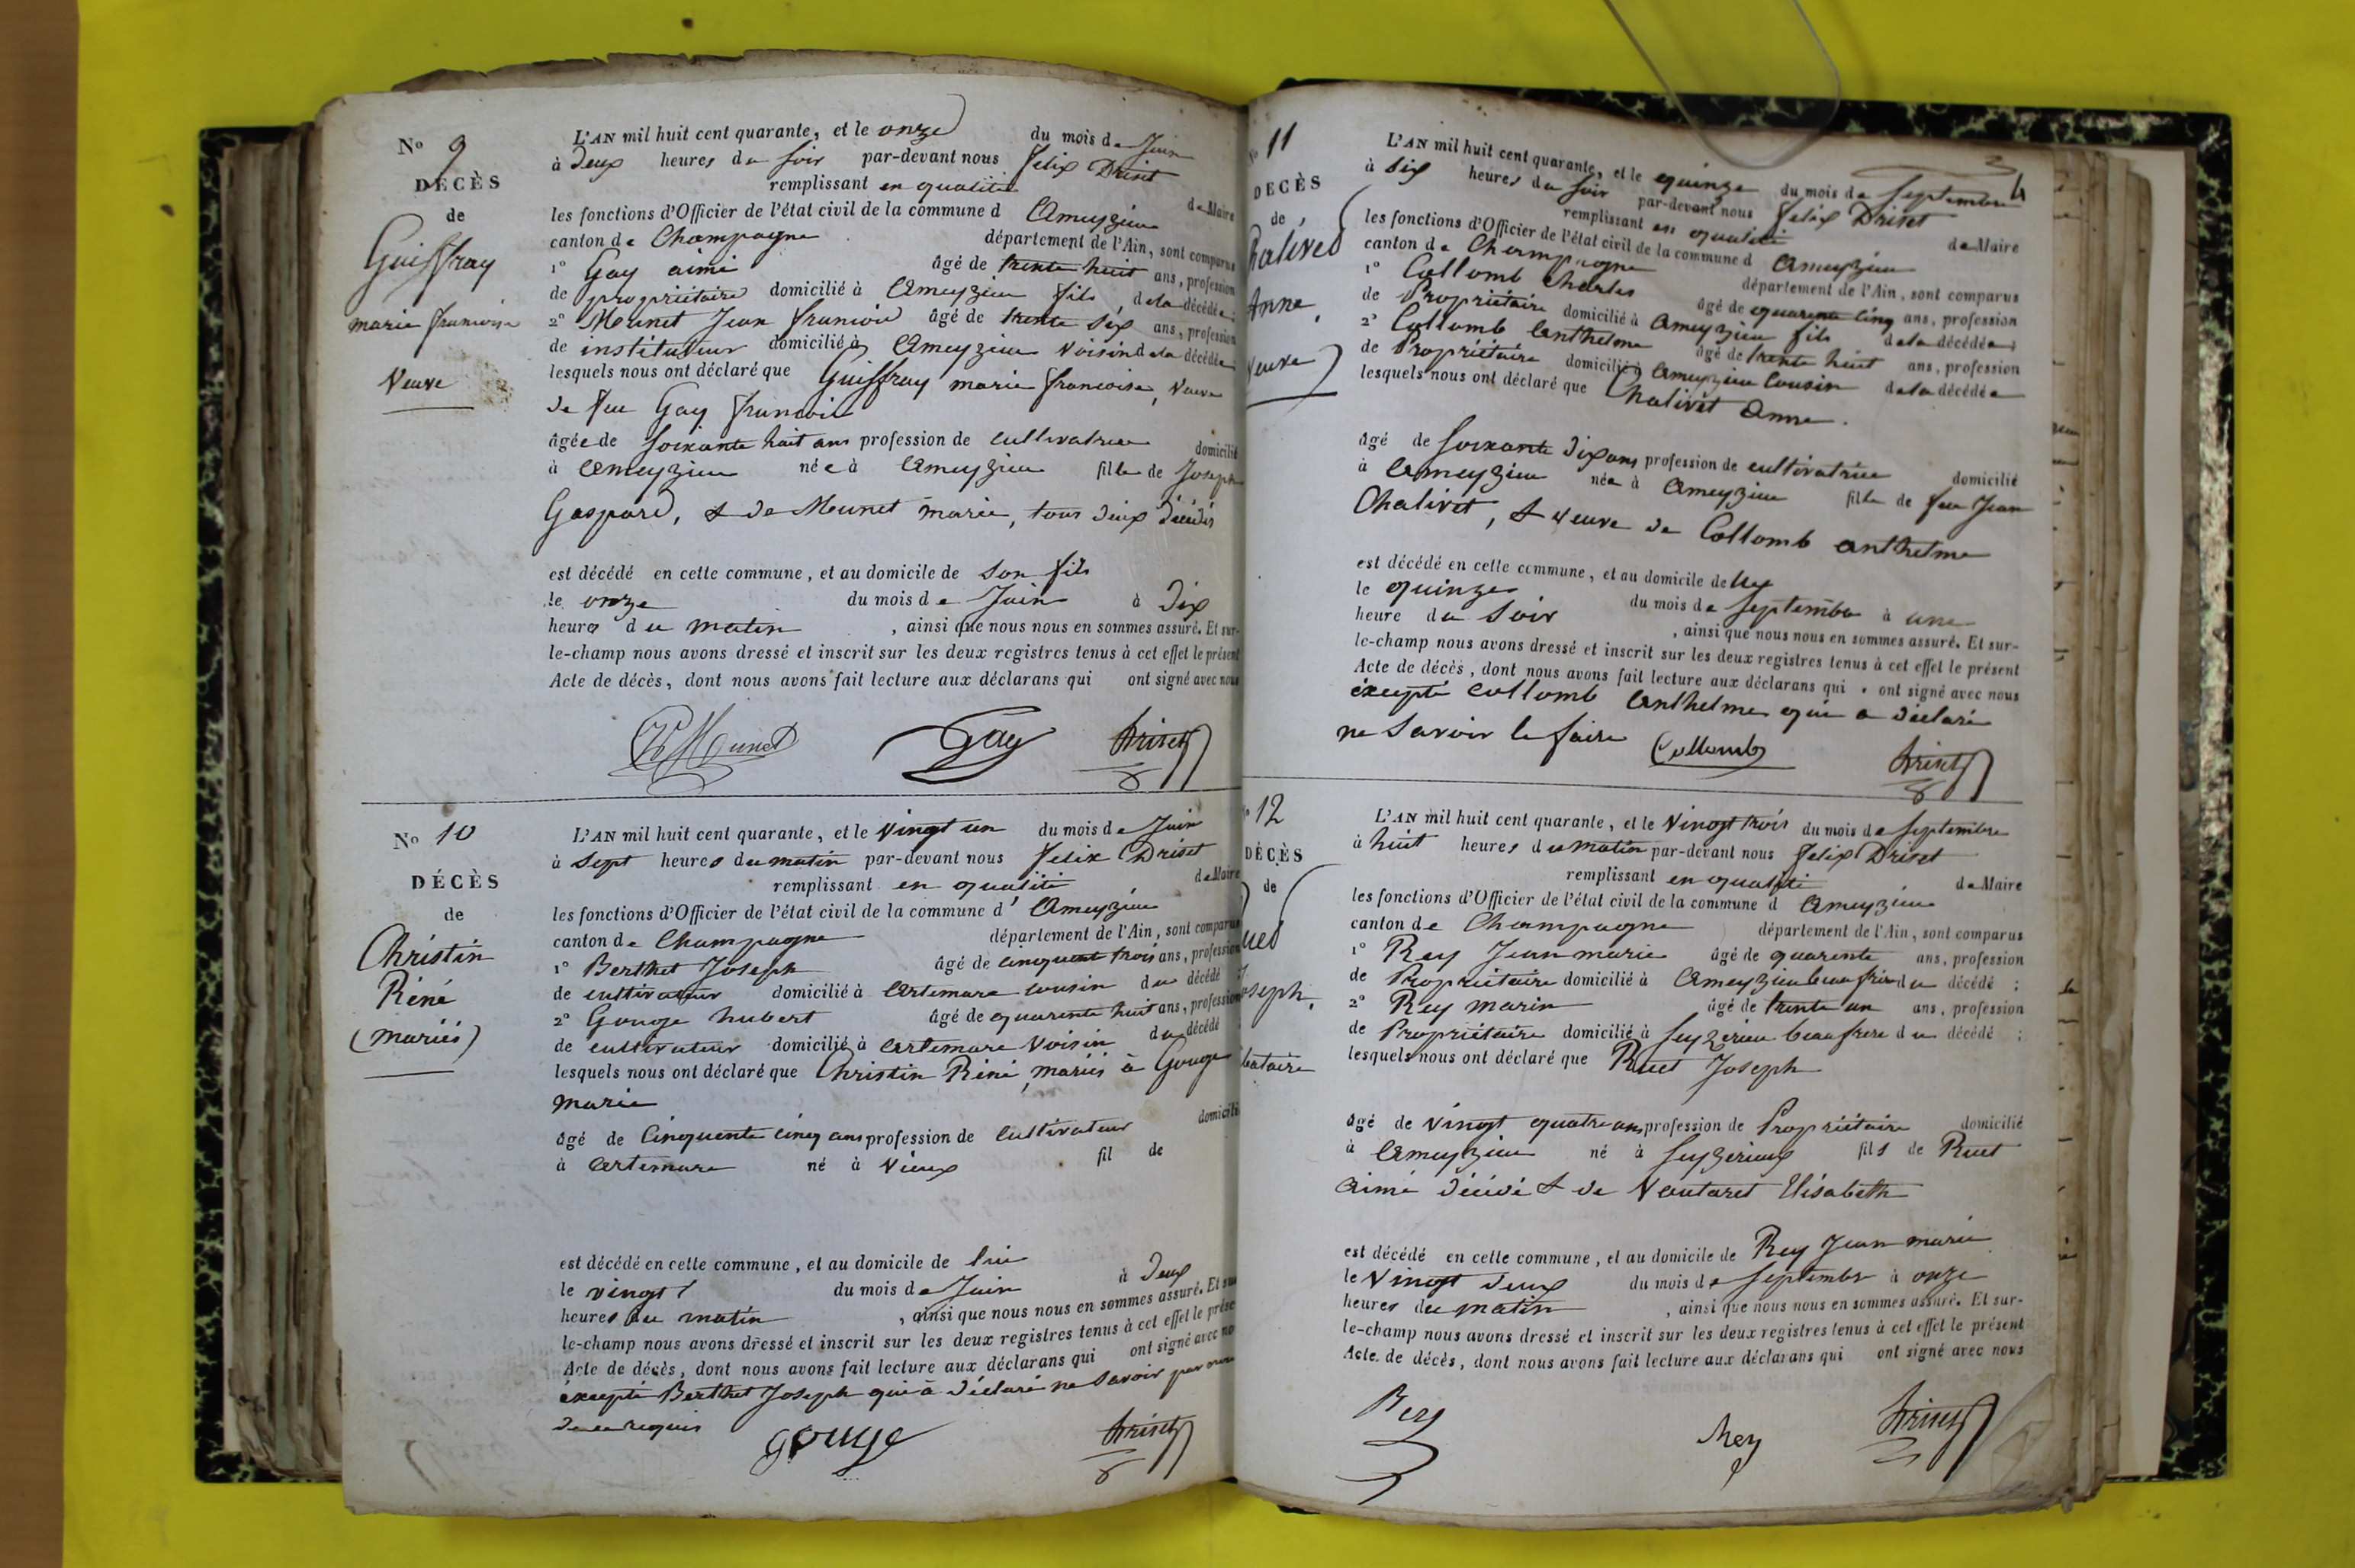 No 9
DÉCÈS
de
Guiffray
marie francoise
Veuve
L'AN mil huit cent quarante, et le onze du mois de Juin
à deux heures du soir par-devant nous felix Driset
remplissant en qualité de Maire
les fonctions d'Officier de l'état civil de la commune d Ameyzieu
canton de Champagne département de l'Ain, sont comparus
1° Gay aimé âgé de trente huit ans, profession
de propriétaire domicilié à Ameyzieu fils de la décédée;
2° Meunet Jean francois âgé de trente six ans, profession
de instituteur domicilié à Ameyzieu voisin de la décédée;
lesquels nous ont déclaré que Guiffray marie francoise, veuve
de feu Gay francois
âgée de soixante huit ans profession de cultivatrice domicilié
à Ameyzieu née à Ameyzieu fille de Joseph
Gaspard, & de Meunet marie, tous deux décédés
est décédé en cette commune, et au domicile de son fils
le onze du mois de Juin à dix
heures du matin, ainsi que nous nous en sommes assuré. Et sur-
le-champ nous avons dressé et inscrit sur les deux registres tenus à cet effet le présent
Acte de décès, dont nous avons fait lecture aux déclarans qui ont signé avec nous
Meunet Gay Driset
No 10
DÉCÈS
de
Christin
Réné
(mariés)
L'AN mil huit cent quarante, et le vingt un du mois de Juin
à sept heures du matin par-devant nous felix Driset
remplissant en qualité de Maire
les fonctions d'Officier de l'état civil de la commune d' Ameyzieu
canton de Champagne département de l'Ain, sont comparus
1° Berthet Joseph âgé de cinquante trois ans, profession
de cultivateur domicilié à Artemare cousin du décédé
2° Gouge hubert âgé de quarante huit ans, profession
de cultivateur domicilié à Artemare voisin du décédé
lesquels nous ont déclaré que Christin Réné, mariés à Gouge
marie
âgé de Cinquante cinq ans profession de cultivateur domicilié
à Artemare né à Vieux fil de
est décédé en cette commune, et au domicile de lui
le vingt du mois de Juin à deux
heures du matin, ainsi que nous nous en sommes assuré. Et sur
le-champ nous avons dressé et inscrit sur les deux registres tenus à cet effet le prése
Acte de décès, dont nous avons fait lecture aux déclarans qui ont signé avec no
excepté Berthet Joseph qui a déclaré ne savoir par nous
de ce requis
gouge Driset
11
DECÈS
de
Chalivet
Anne
veuve
L'AN mil huit cent quarante, et le quinze du mois de septembre 4
à six heures du soir par-devant nous felix Driset
remplissant en qualité de Maire
les fonctions d'Officier de l'état civil de la commune d Ameyzieu
canton de Champagne département de l'Ain, sont comparus
1° Collomb Charles âgé de quarante cinq ans, profession
de Propriétaire domicilié à Ameyzieu fils de la décédée;
2° Collomb Anthelme âgé de trente huit ans, profession
de Propriétaire domicilié à Ameyzieu Cousin de la décédée
lesquels nous ont déclaré que Chalivet Anne.
âgé de soixante dix ans profession de cultivatrice domicilié
à Ameyzieu née à Ameyzieu fille de feu Jean
Chalivet, & veuve de Collomb anthelme
est décédé en cette commune, et au domicile de
le quinze du mois de septembre à une
heure du soir, ainsi que nous nous en sommes assuré. Et sur-
le-champ nous avons dressé et inscrit sur les deux registres tenus à cet effet le présent
Acte de décès, dont nous avons fait lecture aux déclarans qui ont signé avec nous
excepté Collomb Anthelme qui a déclaré
ne savoir le faire Collomb Driset
12
DÉCÈS
de
uet
Joseph,
bataire
L'AN mil huit cent quarante, et le vingt trois du mois de septembre
à huit heures du matin par-devant nous felix Driset
remplissant en qualité de Maire
les fonctions d'Officier de l'état civil de la commune d Ameyzieu
canton de Champagne département de l'Ain, sont comparus
1° Rey Jean marie âgé de quarante ans, profession
de Propriétaire domicilié à Ameyzieu beau frère du décédé;
2° Rey marin âgé de trente un ans, profession
de Propriétaire domicilié à seyzerieu beau frere du décédé;
lesquels nous ont déclaré que Ruet Joseph
âgé de vingt quatre ans profession de Propriétaire domicilié
à Ameyzieu né à seyzerieux fils de Ruet
aimé décédé & de Vautaret Elisabeth
est décédé en cette commune, et au domicile de Rey Jean marie
le vingt deux du mois de septembre à onze
heures du matin, ainsi que nous nous en sommes assuré. Et sur-
le-champ nous avons dressé et inscrit sur les deux registres tenus à cet effet le présent
Acte de décès, dont nous avons fait lecture aux déclarans qui ont signé avec nous
Rey Rey Driset